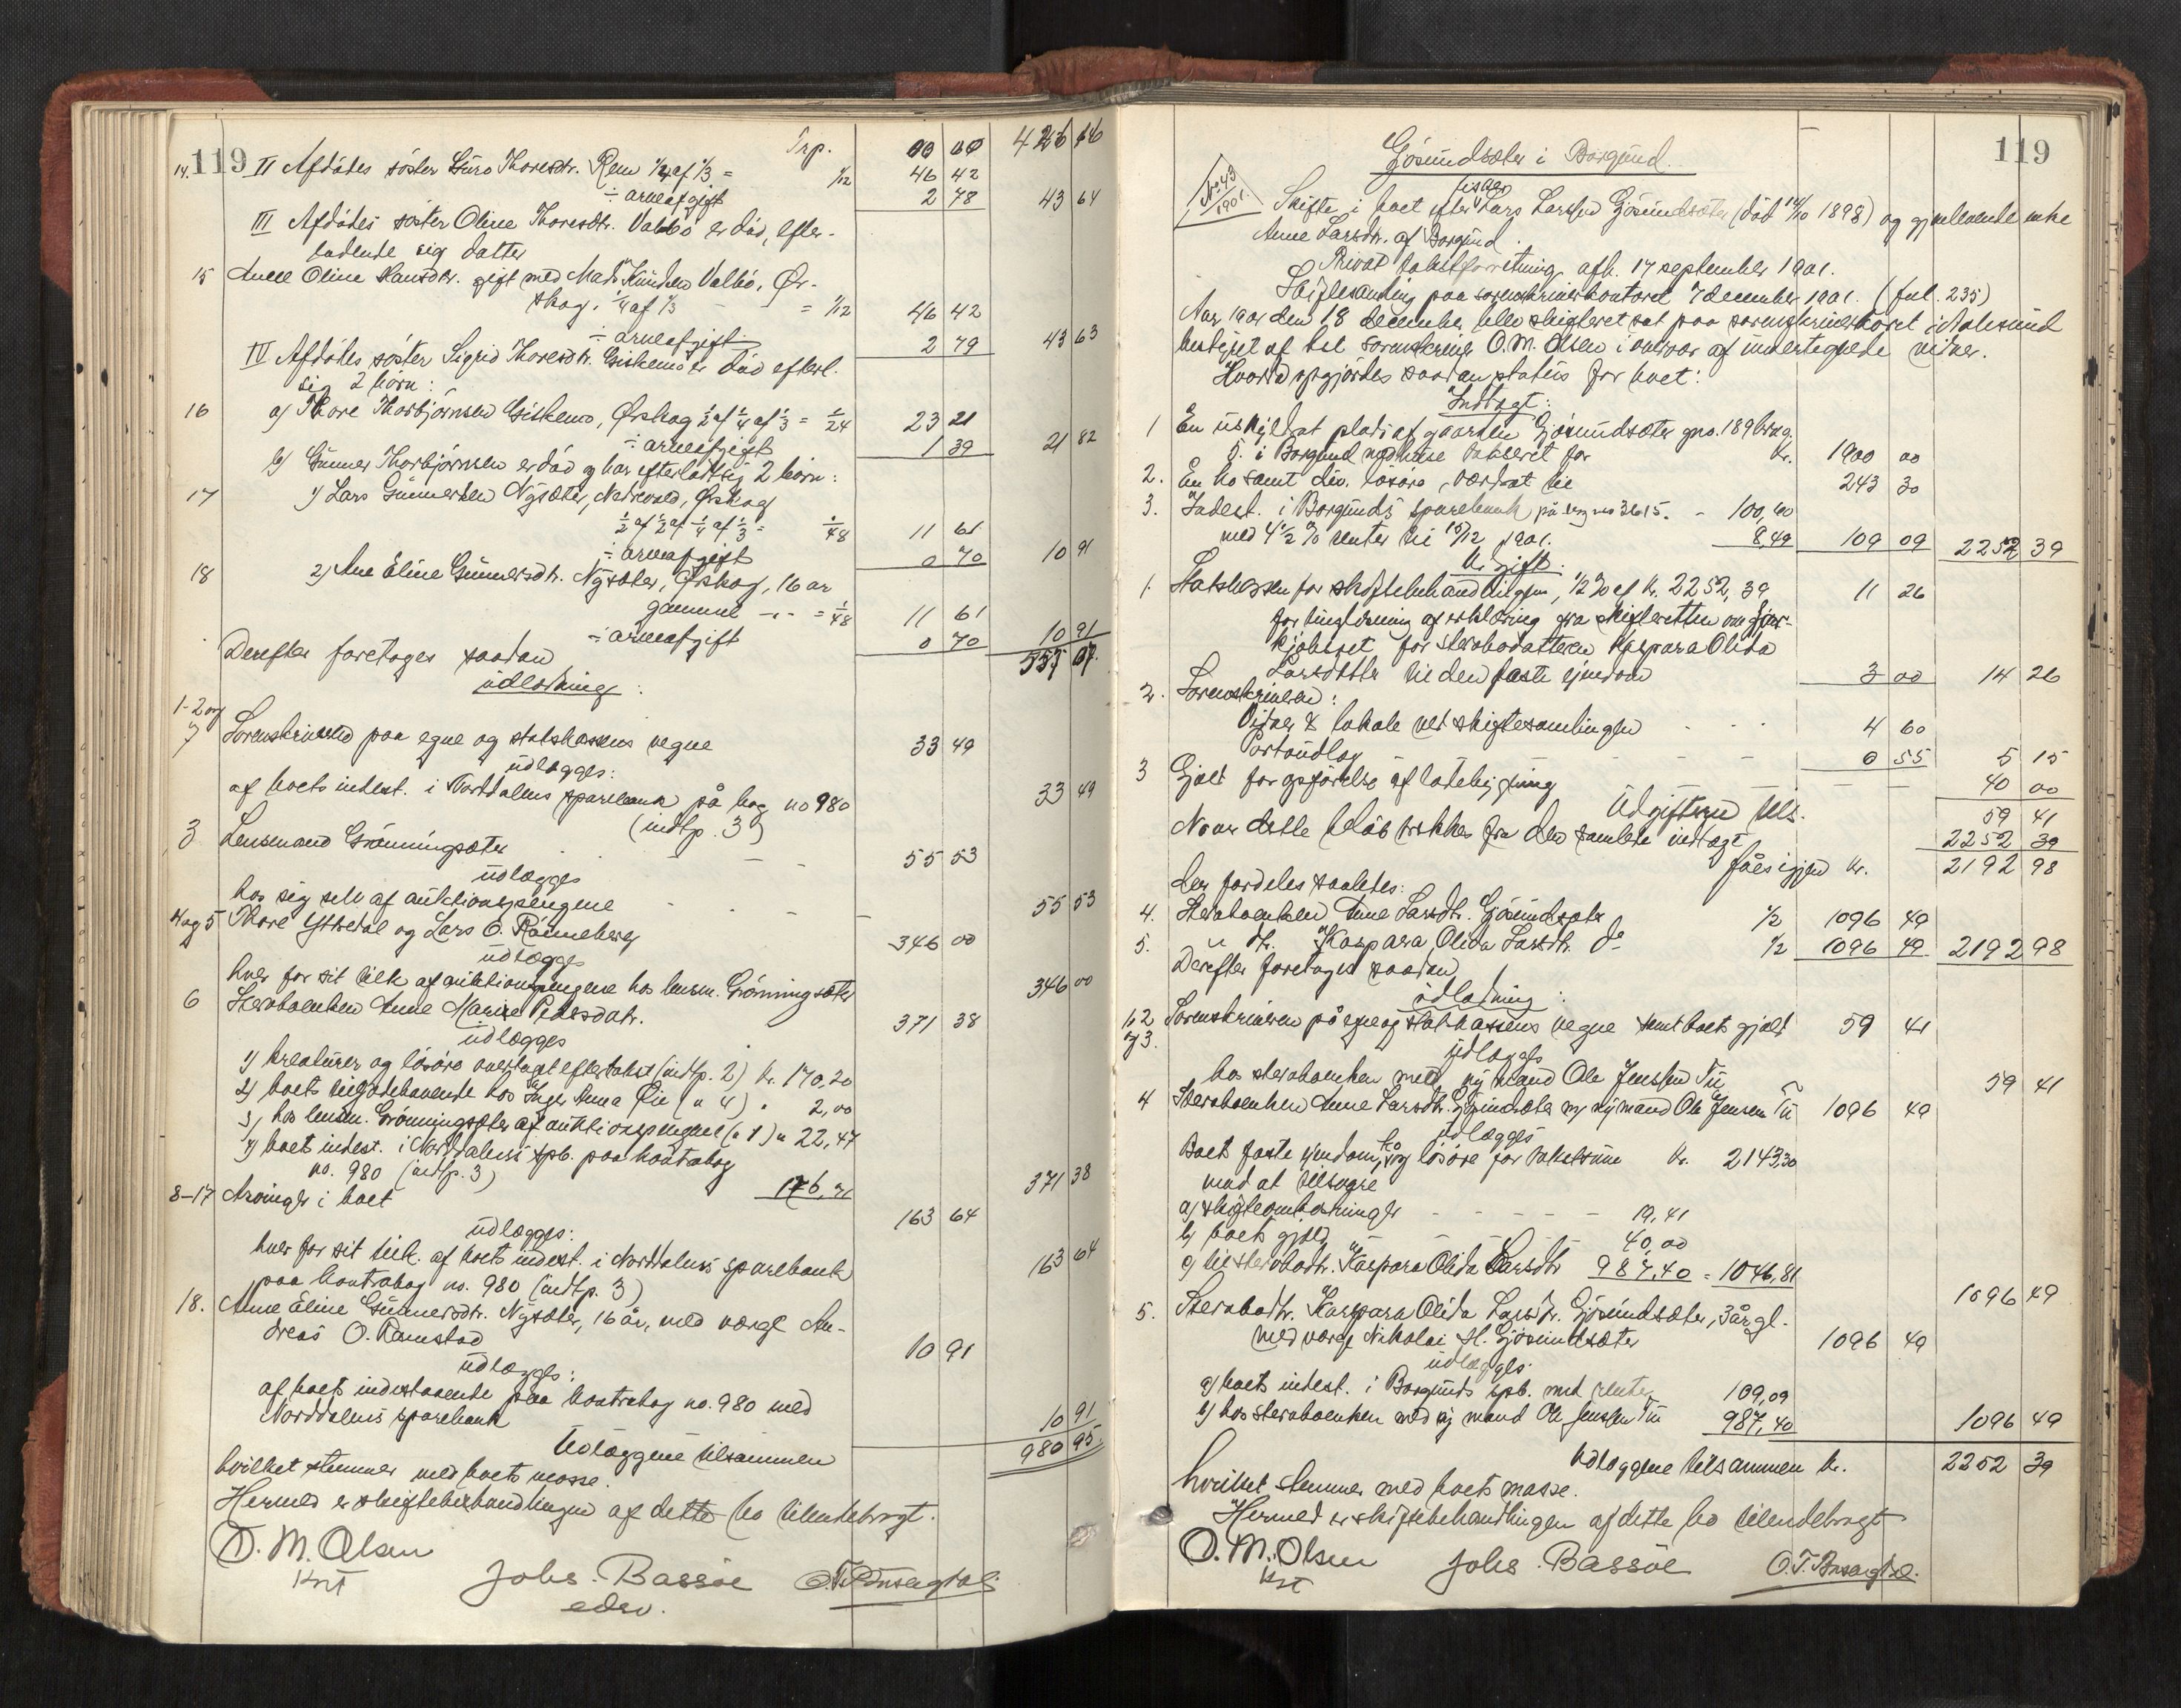 119
Trp. 00 00 426 66
14. II Afdødes søster Guro Thoresdtr. Rem ¼ af ⅓ = 1/12 46 42
÷ arveafgift 2 78 43 64
III Afdødes søster Oline Thoresdtr. Valbö er död, efter-
ladende sig datter
15 Anne Oline Hansdtr. gift med Mads Knudsen Valbö, Ør-
skog, ¼ af ⅓ = 1/12 46 42
÷ arveafgift 2 79 43 63
IV Afdødes søster Sigrid Thoresdtr. Giskemo er död efterl.
sig 2 börn:
16 a) Thore Thorbjörnsen Giskemo, Ørskog ½ af ¼ af ⅓ = 1/24 23 21
÷ arveafgift 1 39 21 82
b) Gunner Thorbjörnsen er död og har efterladt sig 2 börn:
17 1) Lars Gunnersen Nysæter, Ørskog
½ af ½ af ¼ af ⅓ = 1/48 11 61
÷ arveafgift 0 70 10 91
18 2) Ane Eline Gunnersdtr. Nysæter, Ørskog, 16 aar
gammel -"- = 1/48 11 61
÷ arveafgift 0 70 10 91
557 07
Derefter foretoges saadan
udlodning:
1-2 og
7 Sorenskriveren paa egne og statskassens vegne 33 49
udlægges:
af boets indest. i Norddalens sparebank på bog no 980
(indtp. 3) 33 49
3 Lensmand Grönningsæter 55 53
udlægges
hos sig selv af auktionspengene 55 53
4 og 5 Thore Yttredal og Lars O. Rönneberg 346 00
udlægges
hver for sit tilk. af auktionspengene hos lensm. Grönningsæter 346 00
6 Sterboenken Anne Marie Pedersdatr. 371 38
udlægges
1) kreaturer og lösöre overtaget efter takst (indtp. 2) kr. 170,20
2) boets tilgodehavende hos Inger Anna Lie (" 4) " 2,00
3) hos lensm. Grönningsæter af auktionspengene (" 1) " 22,47
4) boets indest. i Norddalens spb. paa kontrabog
no. 980 (indtp. 3) 176,71 371 38
8-17 Arvinger i boet 163 64
udlægges:
hver for sit tilk. af boets indest. i Norddalens sparebank
paa kontrabog no. 980 (indtp. 3) 163 64
18. Anne Eline Gunnersdtr. Nysæter, 16 år, med værge An-
dreas O. Ramstad 10 91
udlægges:
af boets indestaaende paa kontrabog no. 980 med
Norddalens sparebank 10 91
Udlæggene tilsammen 980 95
hvilket stemmer med boets masse.
Hermed er skiftebehandlingen af dette bo tilendebragt.
O. M. Olsen
Kst
Johs. Bassöe
edsv.
119
Gjösundsæter i Borgund.
No 43
1901.
Skifte i boet efter Lars Larssen Gjösundsæter (död 12/10 1898) og gjenlevende enke
Anne Larsdtr. af Borgund.
Privat takstforretning afh. 17 september 1901.
Skiftesamling paa sorenskriverkontoret 7 december 1901. (fol. 235)
Aar 1901 den 18 december blev skifteret sat paa sorenskriverkontoret i Aalesund
bestyret af sorenskriver O. M. Olsen i overvær af undertegnede vidner.
Hvorved opgjördes saadan status for boet:
Indtægt:
1 En uskyldsat plads af gaarden Gjösundsæter gno. 189 brug.
5. i Borgund med huse takseret for kr. 1900 00
2. En ko samt div. lösöre, værdsat til 243 30
3. Indest. i Borgunds sparebank på bog no 3615. - 100,60
med 4½ % renter til 18/12 1901. 8,49 109 09 2252 39
Udgift.
1. Statskassen for skiftebehandlingen, ½ % af kr. 2252,39 11 26
for tinglysning af erklæring fra skifteretten om hjem-
kjöbsret for sterbodatteren Kaspara Olida
Larsdatter til den faste ejendom 3 00 14 26
2. Sorenskriveren:
Vidner & lokale ved skiftesamlingen 4 60
Portoudlæg 0 55 5 15
3 Gjæld for opförelse af ladebygning 40 00
Udgifterne tils. 59 41
Naar dette belöb trækkes fra den samlede indtægt 2252 39
fåes igjen kr. 2192 98
der fordeles saaledes:
4. Sterboenken Anne Larsdtr. Gjösundsæter ½ 1096 49
5. " dtr. Kaspara Olida Larsdtr. do ½ 1096 49 2192 98
Derefter foretoges saadan
udlodning:
1, 2
og 3. Sorenskriveren på egne og statskassens vegne samt boets gjæld 59 41
udlægges
hos sterboenken med ny mand Ole Jenssen Tu 59 41
4 Sterboenken Anne Larsdtr. Gjösundsæter m/ ny mand Ole Jensen Tu 1096 49
udlægges
Boets faste ejendom, ko og lösöre for takstsum kr. 2143,30
mod at tilsvare
a) skifteomkostninger 19,41
b) boets gjæld 40,00
c) til sterbodtr. Kaspara Olida Larsdtr 987,40 = 1046,81 1096 49
5. Sterbodtr. Kaspara Olida Larsdtr. Gjösundsæter, 3 år gl.
med værge Nikolai H. Gjösundsæter 1096 49
udlægges
a) boets indest. i Borgunds spb. med renter 109,09
b) hos sterboenken med ny mand Ole Jenssen Tu 987,40 1096 49
Udlæggene tilsammen kr. 2252 39
hvilket stemmer med boets masse.
Hermed er skiftebehandlingen af dette bo tilendebragt
O. M. Olsen
Kst
Johs. Bassöe